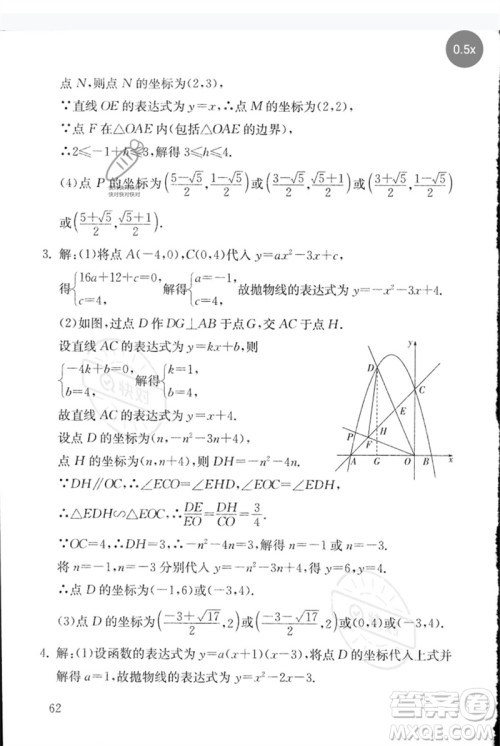 0.5x
点 N,则点 N 的坐标为(2,3),
∵直线 OE 的表达式为 y=x,∴点 M 的坐标为(2,2),
∵点 F 在△OAE 内(包括△OAE 的边界),
∴2≤-1+h≤3,解得 3≤h≤4.
(4)点 P 的坐标为((5-√5)/2,(1-√5)/2)或((3+√5)/2,(√5+1)/2)或((3-√5)/2,(1-√5)/2)
或((5+√5)/2,(√5+1)/2).
3. 解:(1)将点 A(-4,0),C(0,4)代入 y=ax²-3x+c,
得{16a+12+c=0, c=4, 解得{a=-1, c=4, 故抛物线的表达式为 y=-x²-3x+4.
(2)如图,过点 D 作 DG⊥AB 于点 G,交 AC 于点 H.
设直线 AC 的表达式为 y=kx+b,
则{-4k+b=0, b=4, 解得{k=1, b=4,
故直线 AC 的表达式为 y=x+4.
设点 D 的坐标为(n,-n²-3n+4),
点 H 的坐标为(n,n+4),则 DH=-n²-4n.
∵DH∥OC,∴∠ECO=∠EHD,∠EOC=∠EDH,
∴△EDH∽△EOC,∴DE/EO=DH/CO=3/4.
∵OC=4,∴DH=3,∴-n²-4n=3,解得 n=-1 或 n=-3.
将 n=-1 或 n=-3 分别代入,得 y=6,y=4.
∴点 D 的坐标为(-1,6)或(-3,4).
(3)点 D 的坐标为((-3+√17)/2,2)或((-3-√17)/2,2)或(-3,4).
4. 解:(1)设函数的表达式为 y=a(x+1)(x-3),将点的坐标代入上式并
解得 a=1,故抛物线的表达式为 y=x²-2x-3.
62
y
D
C
E
H
P
F
A
G
O
B
x
快对快对快对
答案圈
MXQE.COM